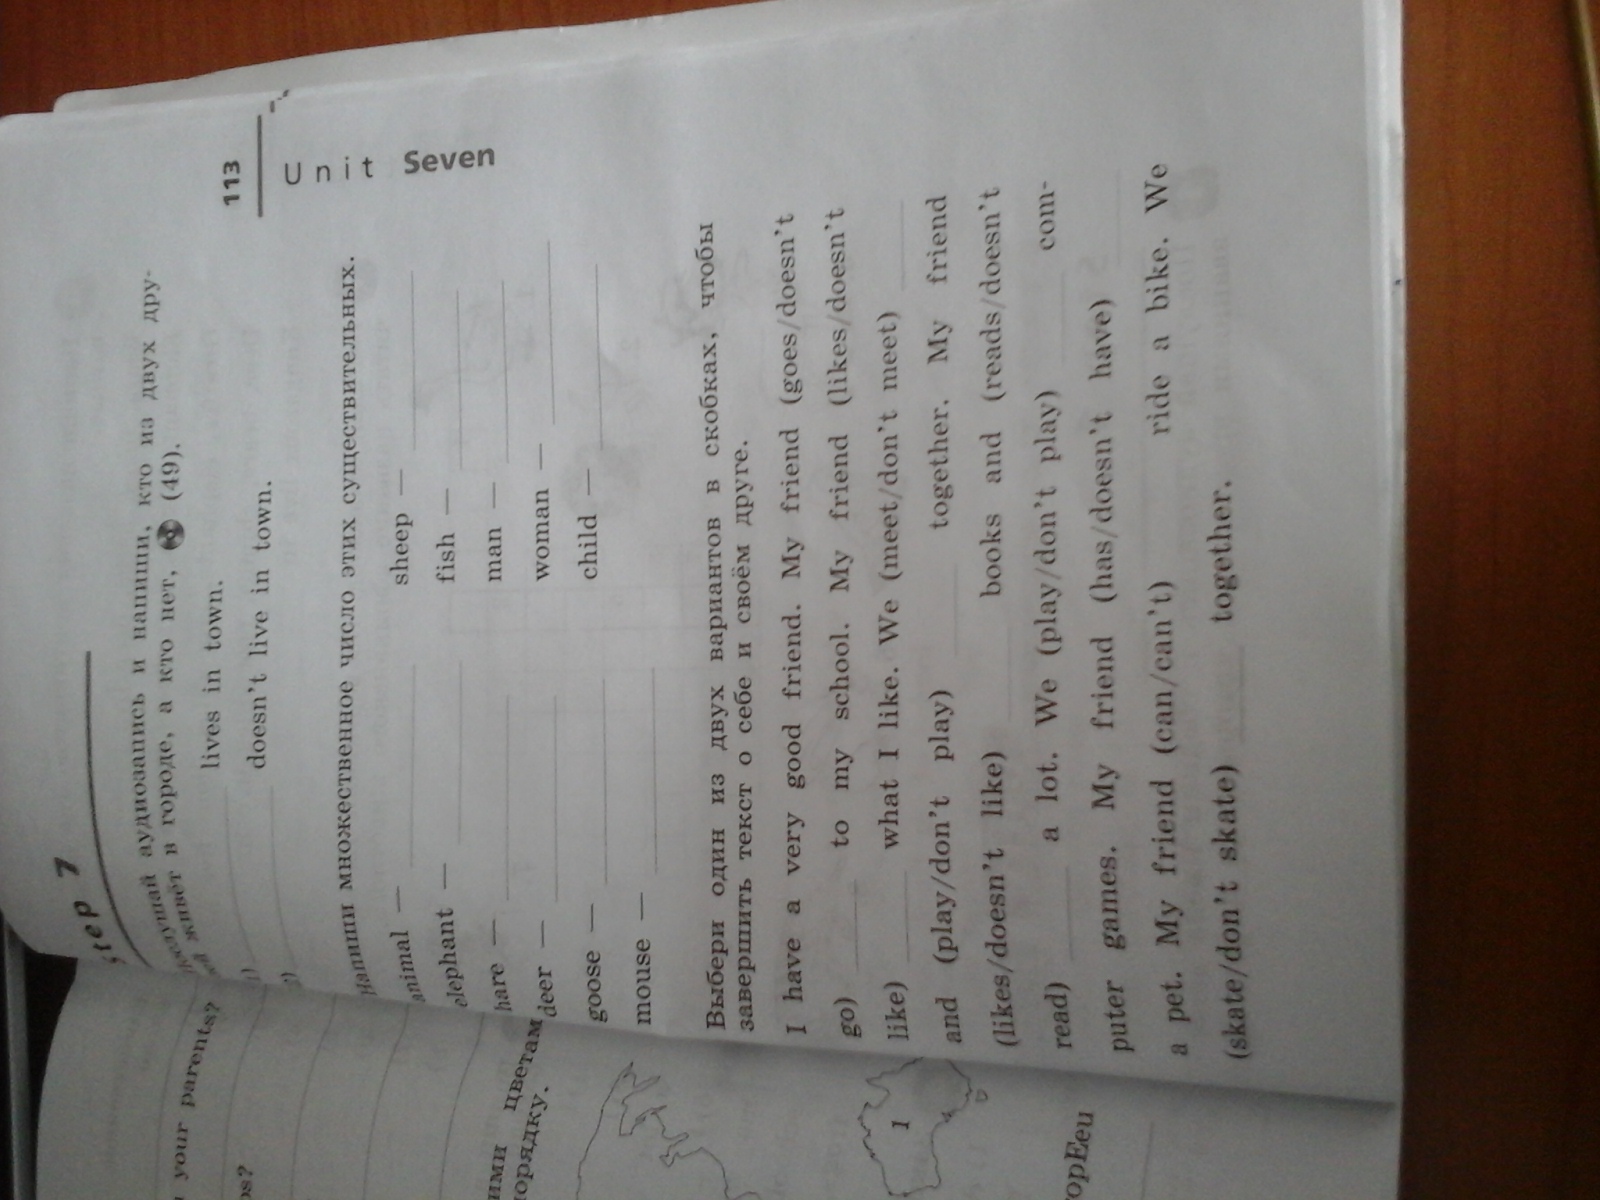 Step 7
113
Unit Seven
Послушай аудиозапись и напиши, кто из двух дру-
живёт в городе, а кто нет, (49).
1) lives in town.
2) doesn't live in town.
Напиши множественное число этих существительных.
animal — sheep —
elephant — fish —
hare — man —
deer — woman —
goose — child —
mouse —
Выбери один из двух вариантов в скобках, чтобы
завершить текст о себе и своём друге.
I have a very good friend. My friend (goes/doesn't
go) to my school. My friend (likes/doesn't
like) what I like. We (meet/don't meet)
and (play/don't play) together. My friend
(likes/doesn't like) books and (reads/doesn't
read) a lot. We (play/don't play) com-
puter games. My friend (has/doesn't have)
a pet. My friend (can/can't) ride a bike. We
(skate/don't skate) together.
your parents?
цветам
порядку.
1